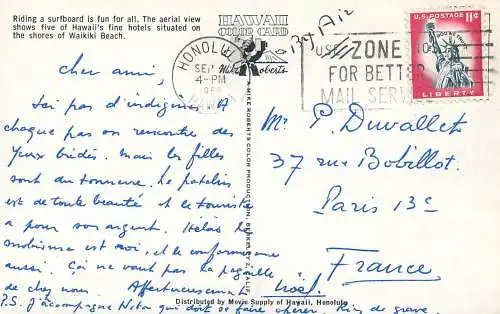 Riding a surfboard is fun for all. The aerial view
shows five of Hawaii's fine hotels situated on
the shores of Waikiki Beach.
HAWAII
COLOR CARD
Mike Roberts
By Air
HONOLULU
SEP
4-PM
HAWAII
USE ZONE NOS.
FOR BETTER
MAIL SERVICE
U.S. POSTAGE 11¢
LIBERTY
Cher ami,
Ici pas d'indigènes. A
chaque pas on rencontre des
yeux bridés. Mais les filles
sont du tonnerre. Le patelin
est de toute beauté et le touriste
a pour son argent. Hélas le
snobisme est roi, et le conformisme
aussi. Ça ne vaut pas la pagaille
de chez nous. Affectueusement
Noël.
P.S. J'accompagne qui doit se faire
MIKE ROBERTS COLOR PRODUCTION, BERKELEY 2, CALIF.
Mr P. Duvallet
37 rue Bobillot.
Paris 13e
France
Distributed by Movie Supply of Hawaii, Honolulu